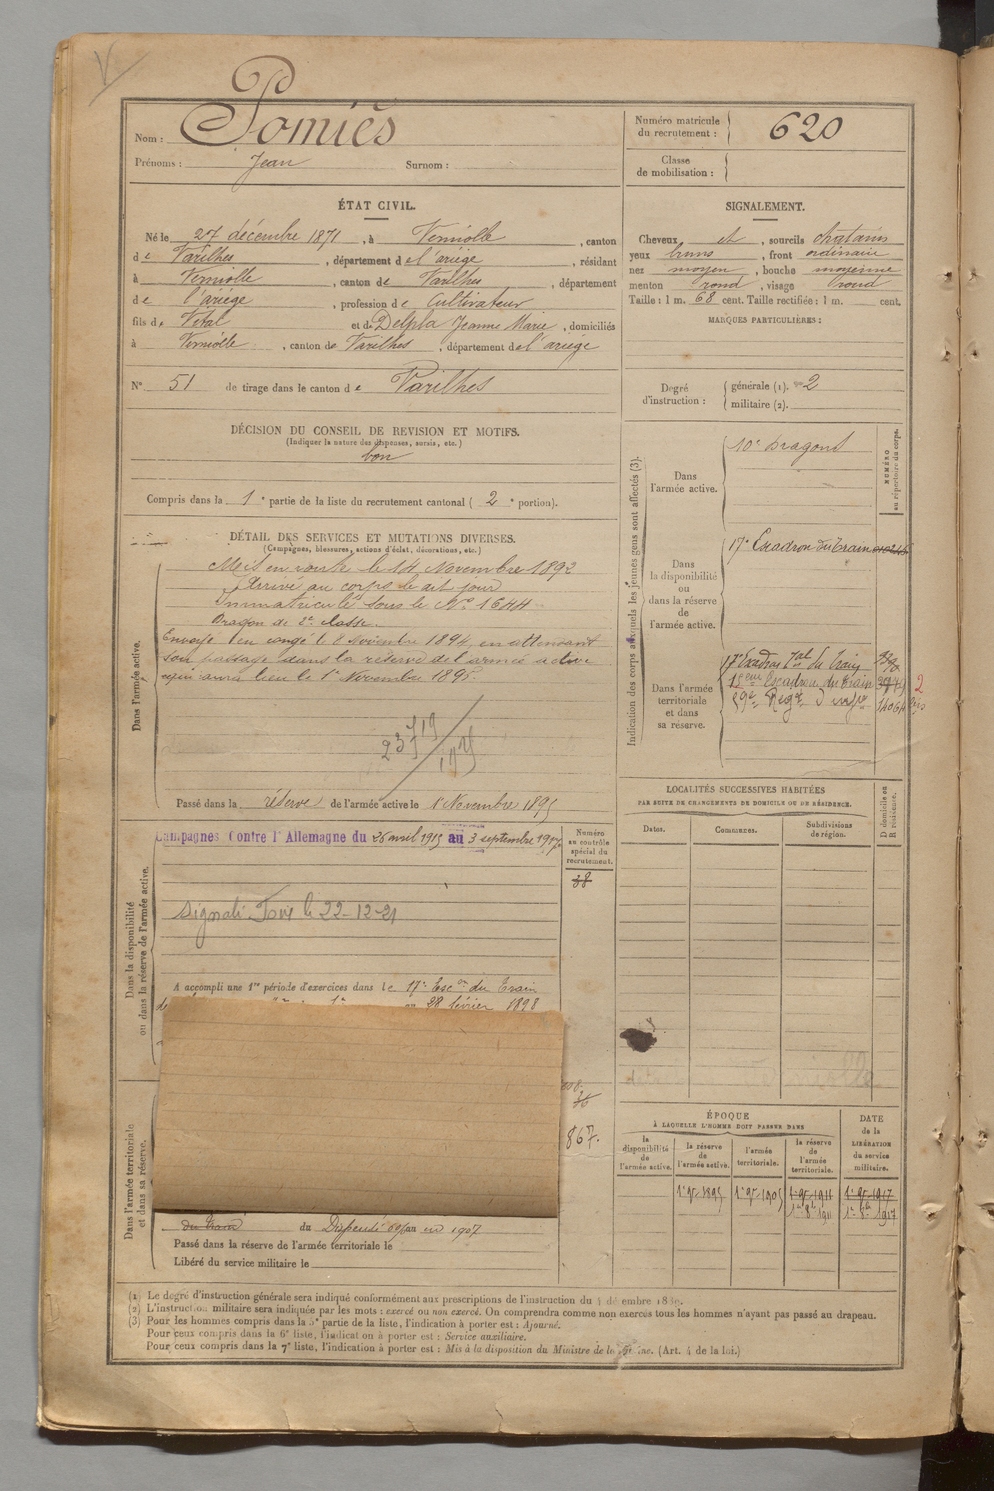 V
Nom : Pomiès
Prénoms : Jean Surnom :
Numéro matricule du recrutement : 620
Classe de mobilisation :
ÉTAT CIVIL.
Né le 27 décembre 1871, à Verniolle, canton
de Varilhes, département de l'ariège, résidant
à Verniolle, canton de Varilhes, département
de l'ariège, profession de Cultivateur
fils de Vital et de Delpla Jeanne Marie, domiciliés
à Verniolle, canton de Varilhes, département de l'ariege
N° 51 de tirage dans le canton de Varilhes
SIGNALEMENT.
Cheveux et, sourcils chatains
yeux bruns, front ordinaire
nez moyen, bouche moyenne
menton rond, visage rond
Taille : 1 m. 68 cent. Taille rectifiée : 1 m. cent.
MARQUES PARTICULIÈRES :
Degré d'instruction : générale (1). 2
militaire (2).
DÉCISION DU CONSEIL DE REVISION ET MOTIFS.
(Indiquer la nature des dispenses, sursis, etc.)
bon
Compris dans la 1e partie de la liste du recrutement cantonal (2e portion).
DÉTAIL DES SERVICES ET MUTATIONS DIVERSES.
(Campagnes, blessures, actions d'éclat, décorations, etc.)
Dans l'armée active.
Mis en route le 14 Novembre 1892
Arrivé au corps le dit jour
Immatriculé sous le N° 1644
Dragon de 2e classe.
Envoyé en congé le 8 novembre 1894, en attendant
son passage dans la réserve de l'armée active
qui aura lieu le 1er Novembre 1895.
Passé dans la réserve de l'armée active le 1er Novembre 1895
Indication des corps auxquels les jeunes gens sont affectés (3).
NUMÉRO au répertoire du corps.
Dans l'armée active.
10e Dragons
Dans la disponibilité ou dans la réserve de l'armée active.
17e Escadron du Train
Dans l'armée territoriale et dans sa réserve.
17e Escadron Tal du Train
Escadron du Train
59e Regt d'infie 14064 bis
2
Dans la disponibilité ou dans la réserve de l'armée active.
Campagnes Contre l'Allemagne du 26 avril 1915 au 3 septembre 1917
Numéro au contrôle spécial du recrutement.
38
Signalé Foix le 22-12-21
A accompli une 1re période d'exercices dans le 17e Escon du Train
28 février 1898
LOCALITÉS SUCCESSIVES HABITÉES
PAR SUITE DE CHANGEMENTS DE DOMICILE OU DE RÉSIDENCE.
Dates. Communes. Subdivisions de région. D domicile ou R résidence.
Dans l'armée territoriale et dans sa réserve.
867.
du Train du Dispensé en 1907
Passé dans la réserve de l'armée territoriale le
Libéré du service militaire le
ÉPOQUE
À LAQUELLE L'HOMME DOIT PASSER DANS
la disponibilité de l'armée active. la réserve de l'armée active. l'armée territoriale. la réserve de l'armée territoriale.
DATE de la LIBÉRATION du service militaire.
1er 9bre 1895 1er 9bre 1905 1er 9bre 1911 1er 9bre 1917
1er 8bre 1911 1er 8bre 1917
(1) Le degré d'instruction générale sera indiqué conformément aux prescriptions de l'instruction du 4 décembre 1889.
(2) L'instruction militaire sera indiquée par les mots : exercé ou non exercé. On comprendra comme non exercés tous les hommes n'ayant pas passé au drapeau.
(3) Pour les hommes compris dans la 5e partie de la liste, l'indication à porter est : Ajourné.
Pour ceux compris dans la 6e liste, l'indication à porter est : Service auxiliaire.
Pour ceux compris dans la 7e liste, l'indication à porter est : Mis à la disposition du Ministre de la Marine. (Art. 4 de la loi.)